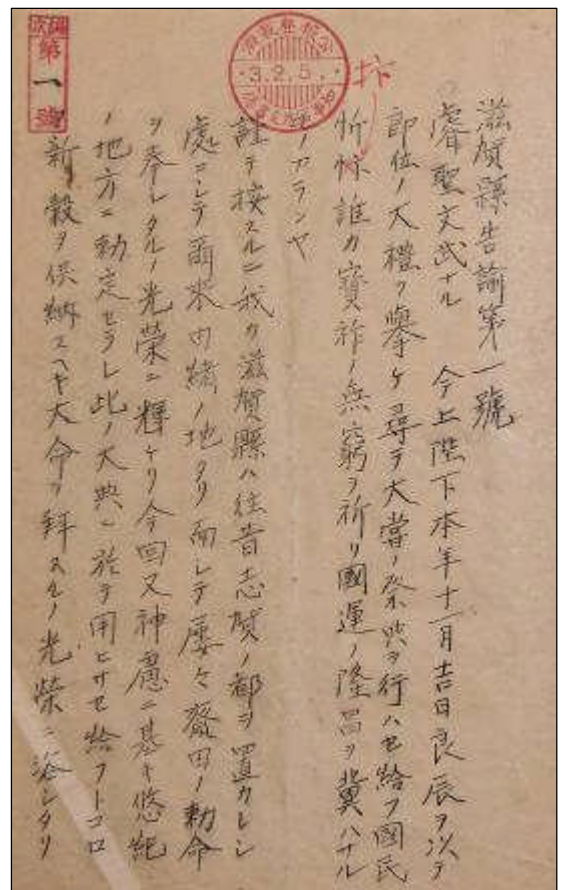 滋賀縣告諭第一號
睿聖文武ナル　今上陛下本年十一月吉日良辰ヲ以テ
即位ノ大禮ヲ擧ケ尋テ大嘗ノ祭典ヲ行ハセ給フ國民
忻忭誰カ寶祚ノ無窮ヲ祈リ國運ノ隆昌ヲ冀ハサル
モノアランヤ
謹テ按スルニ我カ滋賀縣ハ往昔志賀ノ都ヲ置カレシ
處ニシテ爾來由緒ノ地タリ而シテ屢々齋田ノ勅命
ヲ奉シタルノ光榮ニ輝ケリ今回又神慮ニ基キ悠紀
ノ地方ニ勅定セラレ此ノ大典ニ於テ用ヒサセ給フトコロ
ノ新穀ヲ供納スヘキ大命ヲ拜スルノ光榮ニ浴シタリ
忭
3.2.5
第一號